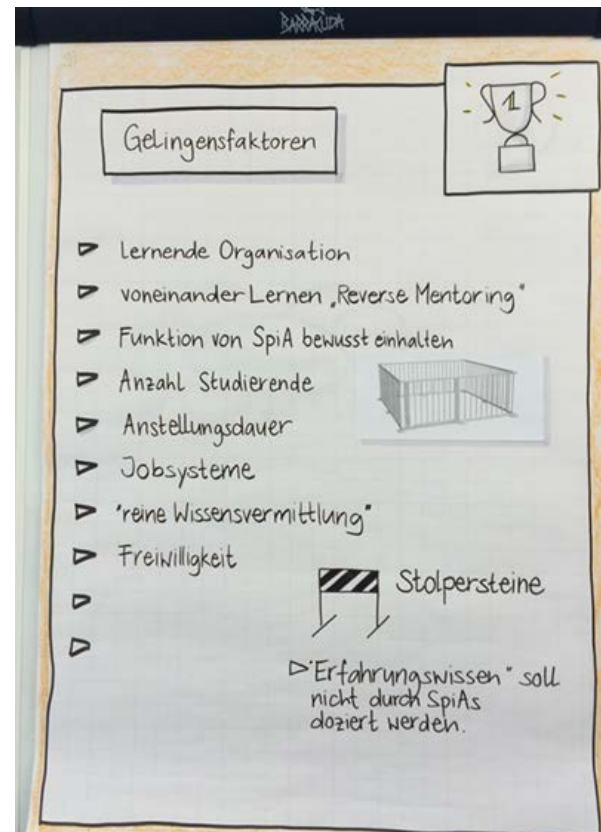 BARRACUDA
1
Gelingensfaktoren
Lernende Organisation
voneinander Lernen „Reverse Mentoring"
Funktion von SpiA bewusst einhalten
Anzahl Studierende
Anstellungsdauer
Jobsysteme
"reine Wissensvermittlung"
Freiwilligkeit
Stolpersteine
"Erfahrungswissen" soll
nicht durch SpiAs
doziert werden.